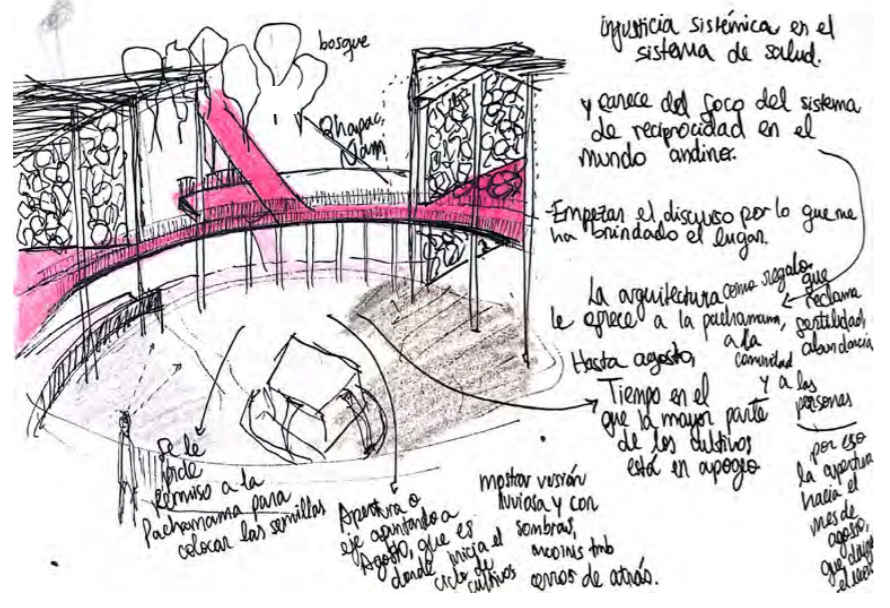 bosque
Qhapac
Ñam
injusticia sistémica en el
sistema de salud.
y carece del foco del sistema
de reciprocidad en el
mundo andino.
Empezar el discurso por lo que me
ha brindado el lugar.
La arquitectura como regalo que
le ofrece a la pachamama,
a la
comunidad
y a las
personas
reclama
fertilidad,
abundancia
Hasta agosto,
Tiempo en el
que la mayor parte
de los cultivos
está en apogeo
por eso
la apertura
hacia el
mes de
agosto,
que
Se le
pide
permiso a la
Pachamama para
colocar las semillas
Apertura o
eje apuntando a
Agosto, que es
donde inicia el
ciclo de
cultivos
mostrar versión
lluviosa y con
sombras,
tmb
cerros de atrás.